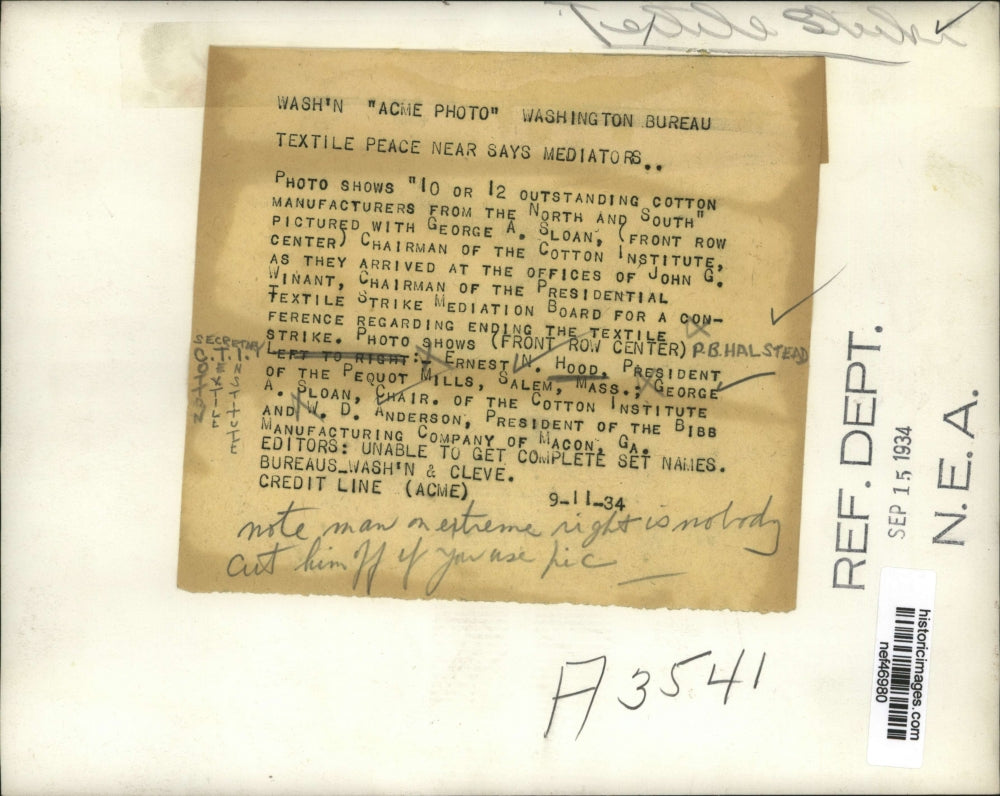 Textile Strike
WASH'N "ACME PHOTO" WASHINGTON BUREAU
TEXTILE PEACE NEAR SAYS MEDIATORS..
PHOTO SHOWS "10 OR 12 OUTSTANDING COTTON
MANUFACTURERS FROM THE NORTH AND SOUTH"
PICTURED WITH GEORGE A. SLOAN, (FRONT ROW
CENTER) CHAIRMAN OF THE COTTON INSTITUTE,
AS THEY ARRIVED AT THE OFFICES OF JOHN G.
WINANT, CHAIRMAN OF THE PRESIDENTIAL
TEXTILE STRIKE MEDIATION BOARD FOR A CON-
FERENCE REGARDING ENDING THE TEXTILE
STRIKE. PHOTO SHOWS (FRONT ROW CENTER) P.B. HALSTEAD
SECRETARY
C.T.I.
COTTON
TEXTILE
INSTITUTE
LEFT TO RIGHT: ERNEST N. HOOD, PRESIDENT
OF THE PEQUOT MILLS, SALEM, MASS.; GEORGE
A. SLOAN, CHAIR. OF THE COTTON INSTITUTE
AND W. D. ANDERSON, PRESIDENT OF THE BIBB
MANUFACTURING COMPANY OF MACON, GA.
EDITORS: UNABLE TO GET COMPLETE SET NAMES.
BUREAUS_WASH'N & CLEVE.
CREDIT LINE (ACME) 9-11-34
note man on extreme right is nobody
cut him off if you use pic
A3541
REF. DEPT.
SEP 15 1934
N.E.A.
historicimages.com
nef46980